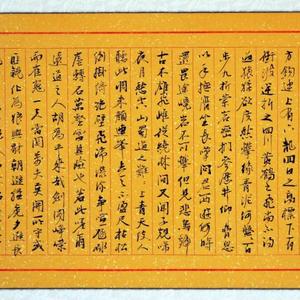 方鉤連上有六龍回日之高標下有
衝波逆折之回川黃鶴之飛尚不得
過猿猱欲度愁攀援青泥何盤盤百
步九折縈巖巒捫參歷井仰脅息
以手撫膺坐長嘆問君西遊何時
還畏途巉巖不可攀但見悲鳥號
古木雄飛雌從繞林間又聞子規啼
夜月愁空山蜀道之難上青天使人
聽此凋朱顏連峰去天不盈尺枯松
倒掛倚絕壁飛湍瀑流爭喧豗砯
崖轉石萬壑雷其險也若此嗟爾
遠道之人胡為乎來哉劍閣崢嶸
而崔嵬一夫當關萬夫莫開所守或
匪親化為狼與豺朝避猛虎夕避長